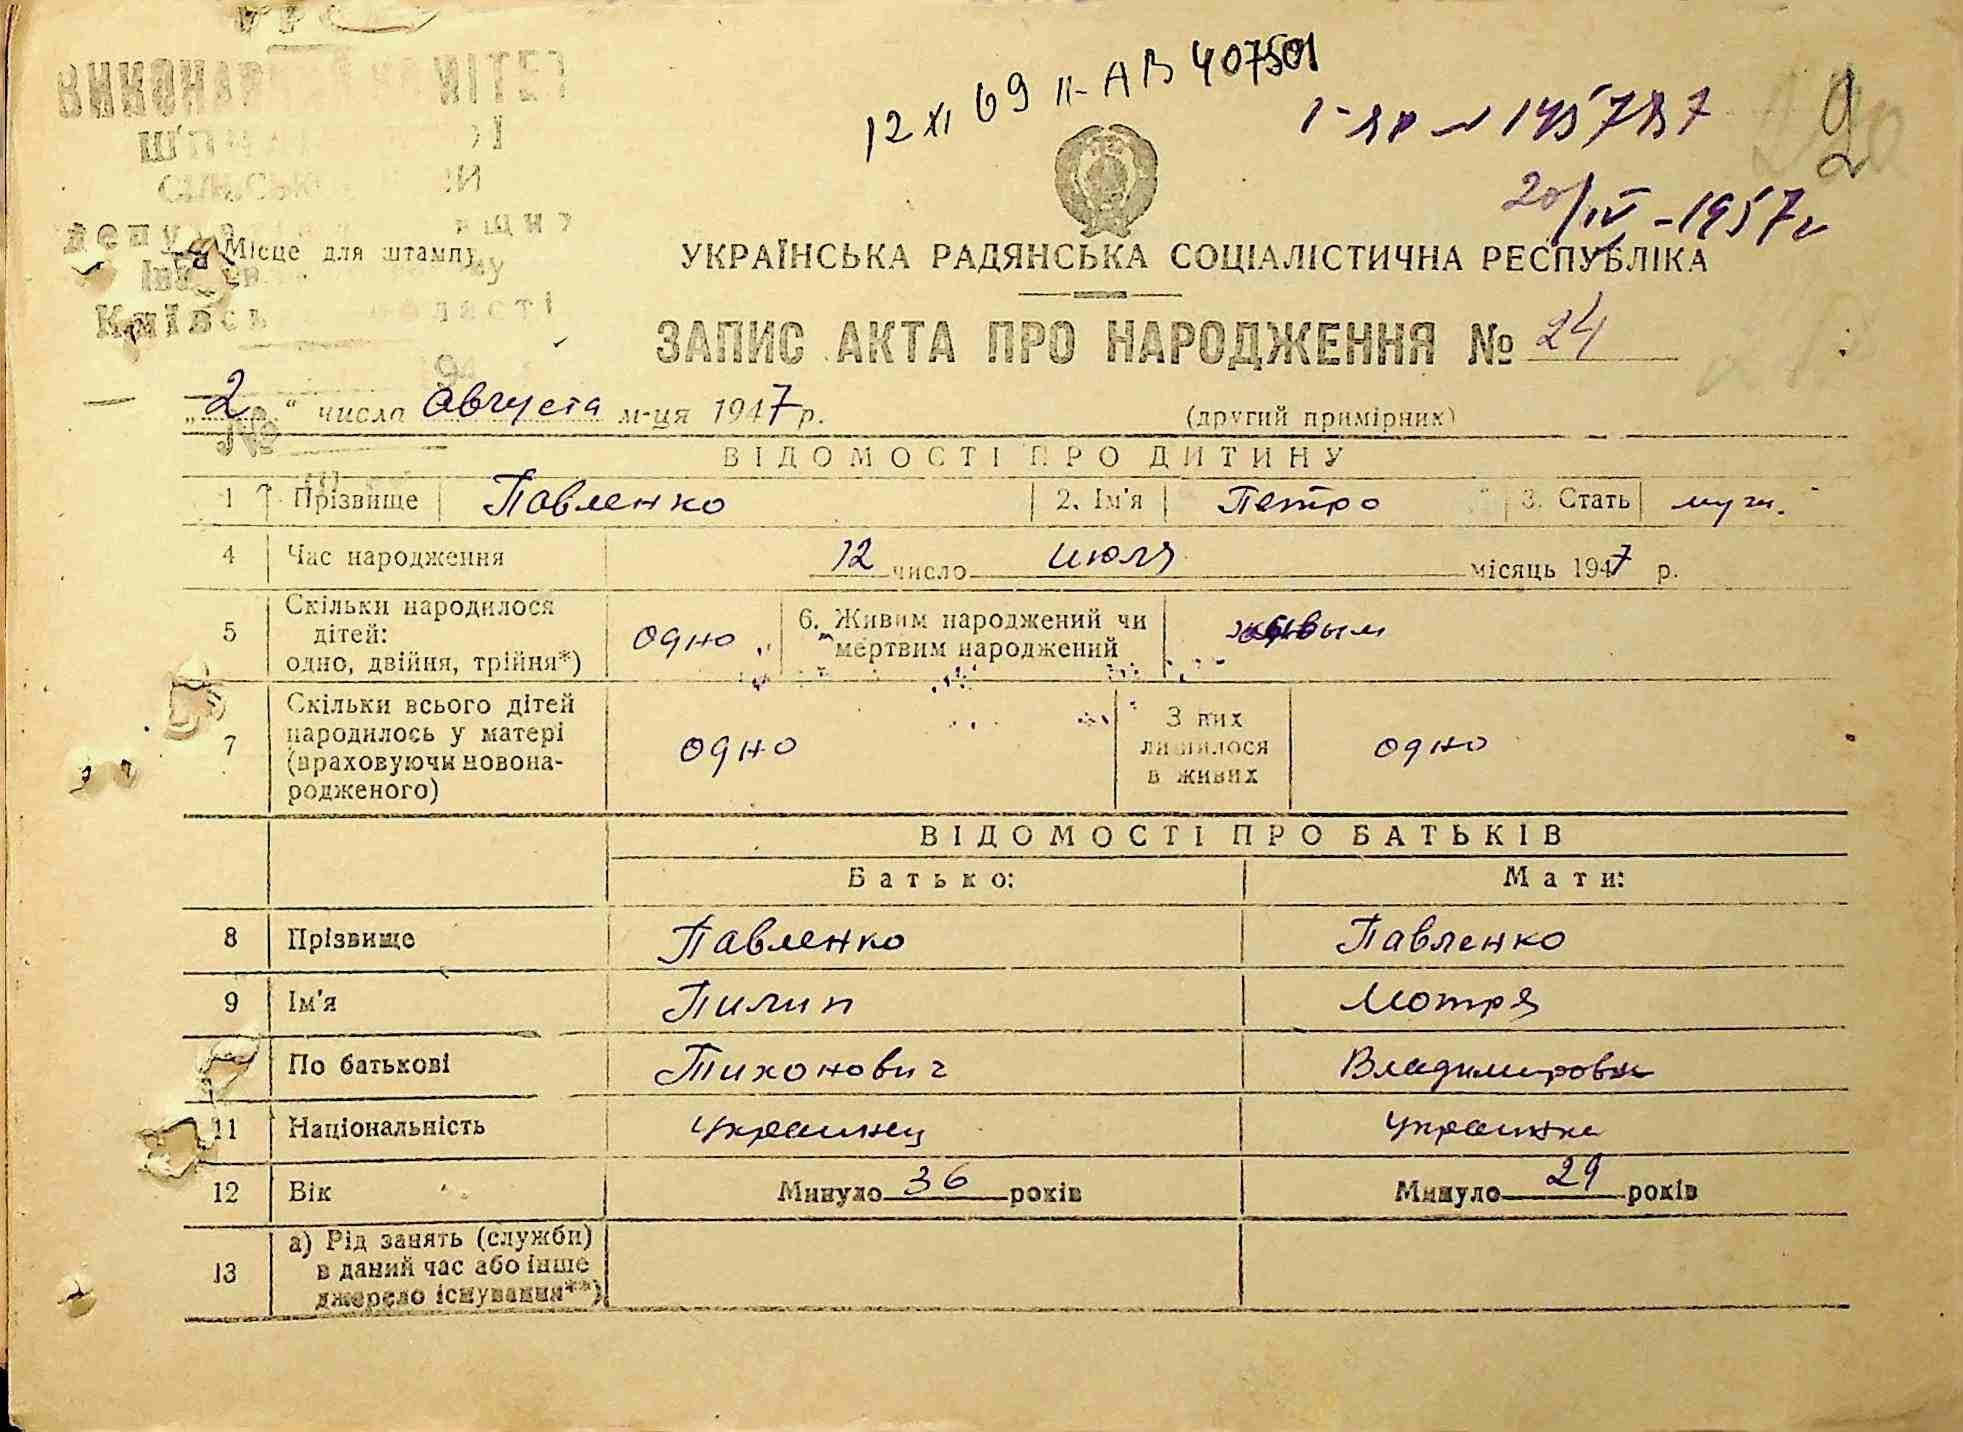 12 XI 69 II-АВ 407501
20/IV-1957г
Місце для штампу
УКРАЇНСЬКА РАДЯНСЬКА СОЦІАЛІСТИЧНА РЕСПУБЛІКА
ЗАПИС АКТА ПРО НАРОДЖЕННЯ № 24
„2“ числа Августа м-ця 1947 р. (другий примірник)
ВІДОМОСТІ ПРО ДИТИНУ
1 Прізвище Павленко 2. Ім'я Петро 3. Стать муж.
4 Час народження 12 число июля місяць 1947 р.
5 Скільки народилося
дітей:
одно, двійня, трійня*) одно
6. Живим народжений чи
мертвим народжений живым
7 Скільки всього дітей
народилось у матері
(враховуючи новона-
родженого) одно
З них
лишилося
в живих одно
ВІДОМОСТІ ПРО БАТЬКІВ
Батько: Мати:
8 Прізвище Павленко Павленко
9 Ім'я Пилип Мотря
По батькові Тихонович Владимировна
11 Національність украинец украинка
12 Вік Минуло 36 років Минуло 29 років
13 а) Рід занять (служби)
в даний час або інше
джерело існування**)